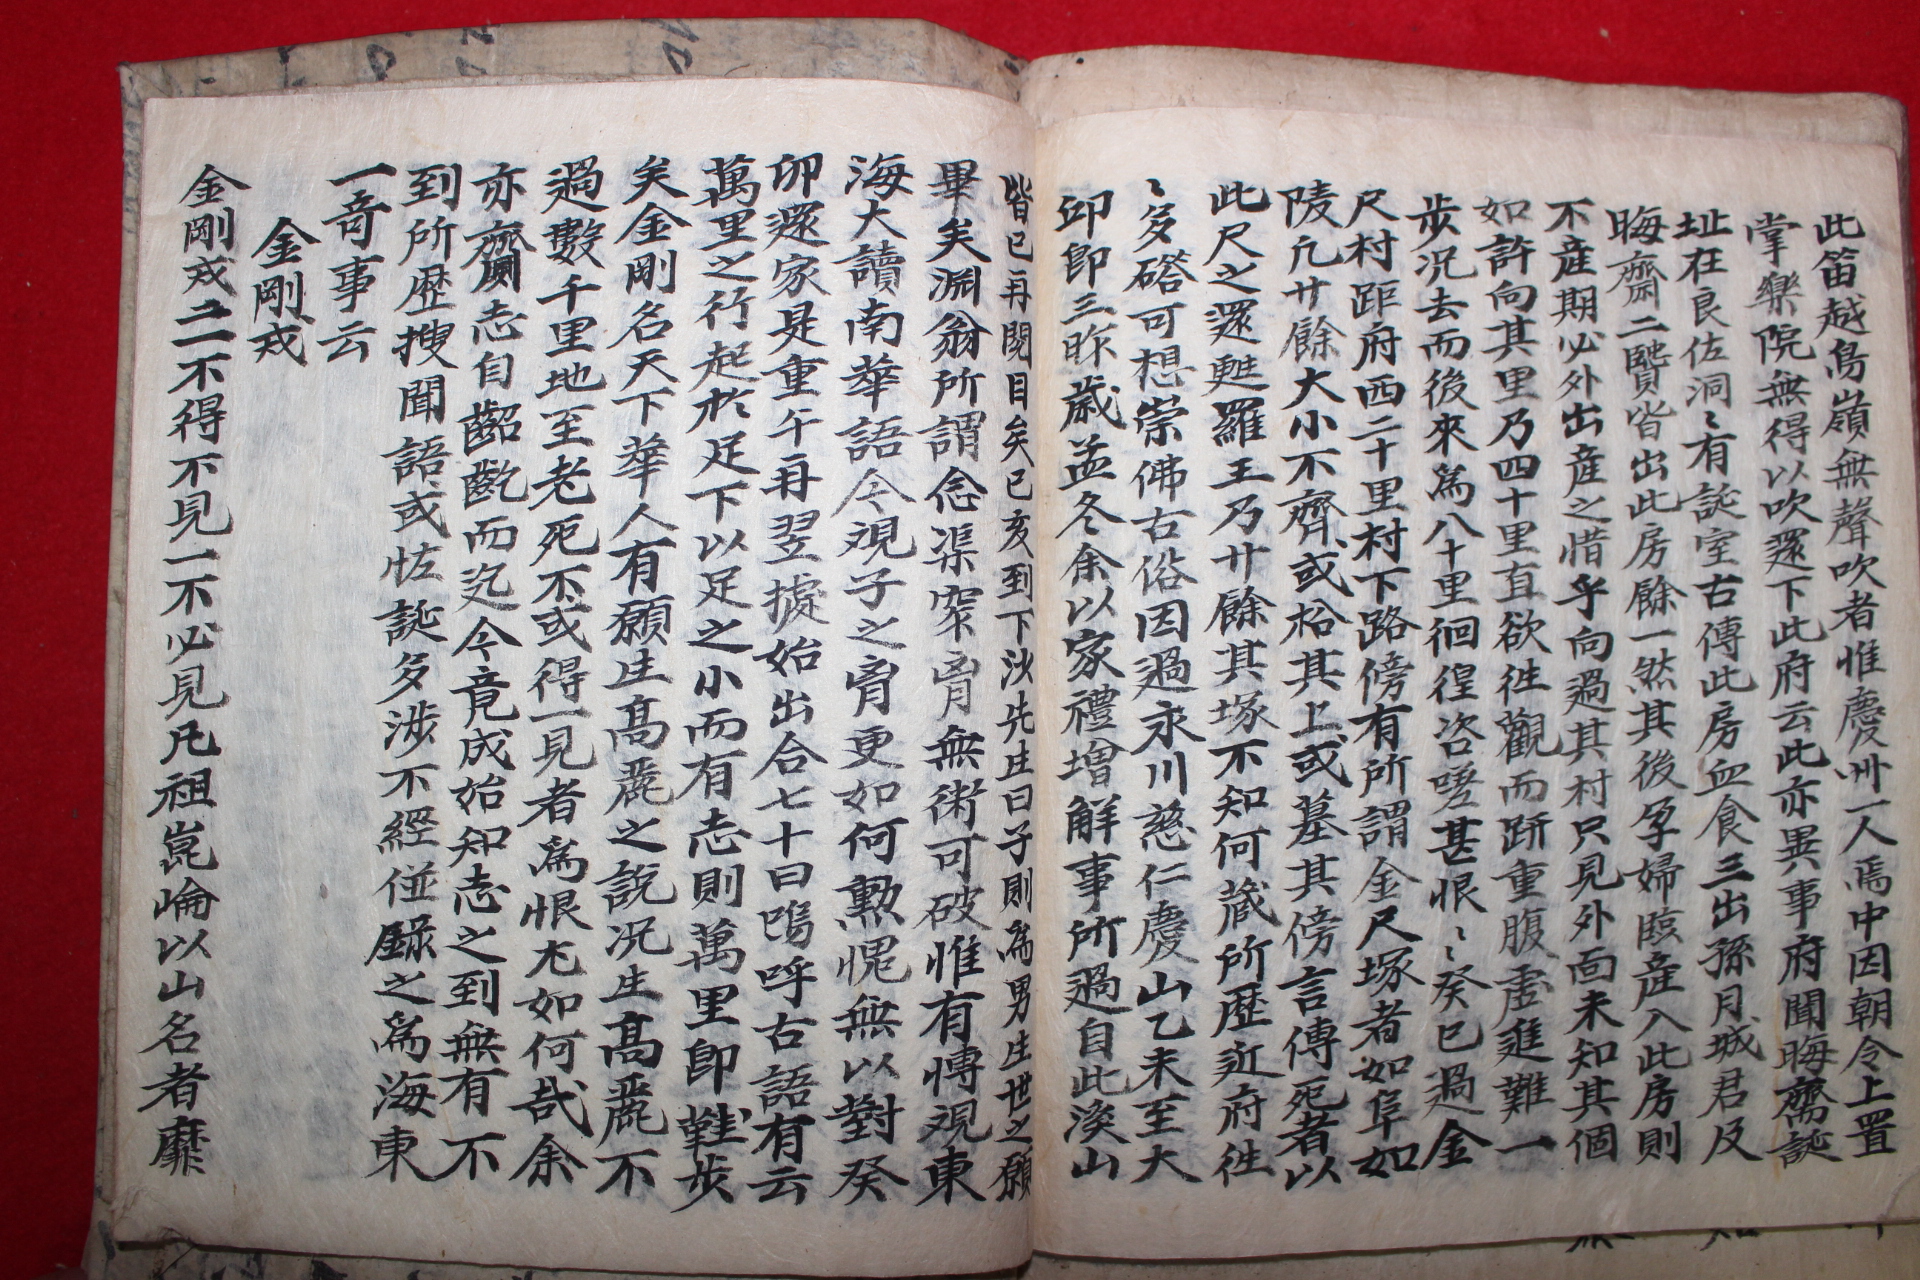 此笛越鳥嶺無聲吹者惟慶州一人焉中因朝令上置
掌樂院無得以吹還下此府云此亦異事府聞晦齋誕
址在良佐洞〻有誕室古傳此房血食三出孫月城君及
晦齋二賢皆出此房餘一然其後孕婦臨産入此房則
不産期必外出産之惜乎向過其村只見外面未知其個
如許向其里乃四十里直欲徃觀而趼重腹虛進難一
步況去而後來爲八十里徊徨咨嗟甚恨〻癸巳過金
尺村距府西二十里村下路傍有所謂金尺塚者如阜如
陵凢廿餘大小不齊或枱其上或墓其傍言傳死者以
此尺之還甦羅王乃廿餘其塚不知何蔵所歷近府徃
〻多磘可想崇佛古俗因過永川慈仁慶山乙未至大
邱即三昨歲孟冬余以家禮增解事所過自此渙山
皆已再閱目矣已亥到下沙先生曰子則爲男生世之願
畢矣淵翁所謂念渠窄胷無術可破惟有愽覌東
海大讀南華語今覌子之胷更如何勲愧無以對癸
卯還家是重午再翌據始出合七十曰嗚呼古語有云
萬里之行起於足下以足之小而有志則萬里即鞋步
矣金剛名天下華人有願生髙麗之說况生髙麗不
過數千里地至老死不或得一見者爲恨尤如何哉余
亦齋厠志自齠齔而迄今竟成始知志之到無有不
到所歷搜聞語或恠誕多涉不經倂錄之爲海東
一奇事云
金剛戎
金剛戎之不得不見一不必見凢祖崑崙以山名者靡